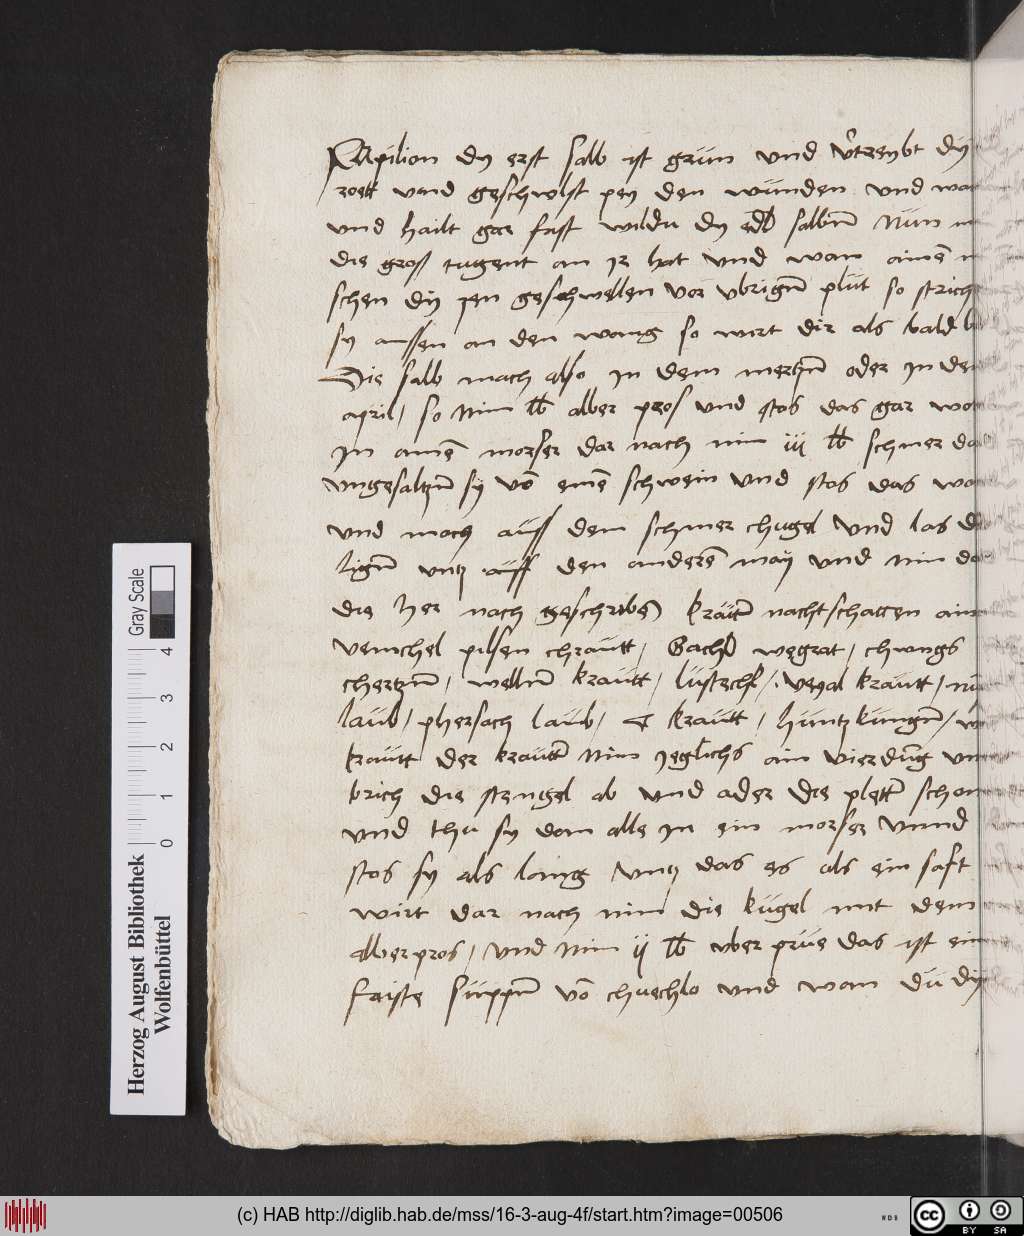 Papilion dy erst salb ist grün und v̂treybt dÿ
roett vnd geschwlst pey den wunden und
und hailt gar fast wildu dy edl salbm̄ Nun
die gross tugent an ir hat und wan aimē
schen dÿ jen geschwellen vor vbrigm̄ plüt so strich
sy aussen an den wang so wirt dir als bald
Die salb mach also in dem mertzn̄ oder in den
april / so Nim lb alber pros und stos das gar
in aimē morser dar nach nim iij lb schmer
ungesaltzn̄ sÿ vō einē schwein und stos das
und mach auss dem schmer chugel und las
lign̄ untz auff den anderē maÿ und nim
die her nach geschribē krautt̄ nachtschatten
venichel pilsen chrautt / Bachl wegrat / chungs
chertzn̄ / welln̄ krautt / lustrchl / veyal krautt /
laub / phersach laub / krautt / huntzkungn̄ /
krautt der krautt̄ nim jeglichs ain vierdūg
brich die stengel ab und ader die plett̄ schon
und thu sy dan alle in ein morser vnnd
stos sy als lang vntz das es als ein saft
wirt dar nach nim die kugel mit dem
alberpros / und nim ij lb uber prüe das ist ein
faiste suppn̄ vō chuechlo und wan du dÿ
Herzog August Bibliothek
Wolfenbüttel
Gray Scale
0 1 2 3 4
(c) HAB http://diglib.hab.de/mss/16-3-aug-4f/start.htm?image=00506
WDB
cc
BY SA